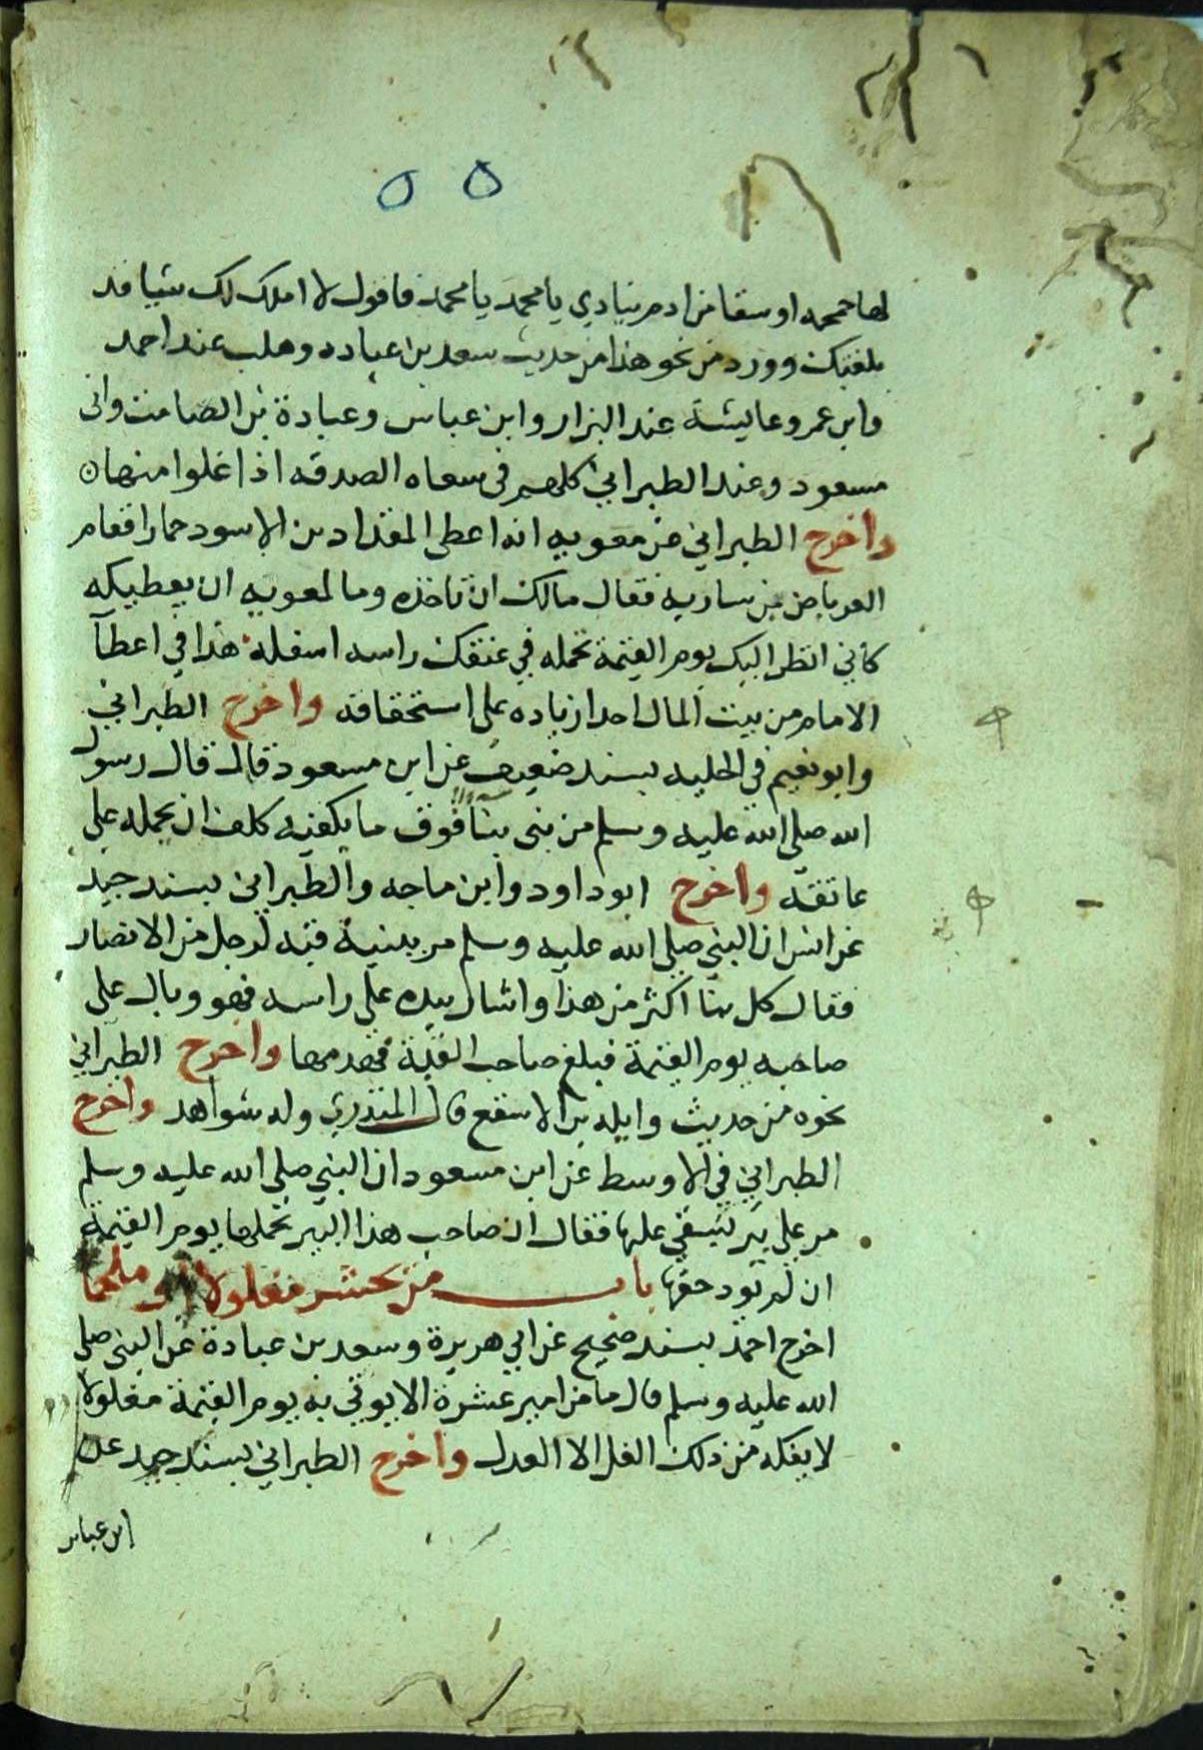 ٥٥
لها حمحمه او سقا من ادم ينادي يا محمد يا محمد فاقول لا املك لك شيا قد
بلغتك وورد من نحو هذا من حديث سعد بن عباده وهلب عند احمد
وابن عمر وعايشة عند البزار وابن عباس وعبادة بن الصامت وابن
مسعود وعند الطبراني كلهم في سعاه الصدقه اذا غلوا منها ه
واخرج الطبراني عن معويه انه اعطى المقداد بن الاسود حمارا فقام
العرباض بن ساريه فقال مالك ان تاخذه وما لمعويه ان يعطيكه
كاني انظر اليك يوم القيمة تحمله في عنقك راسه اسفله هذا في اعطآ
الامام من بيت المال احدا زياده على استحقاقه واخرج الطبراني
وابو نعيم في الحليه بسند ضعيف عن ابن مسعود قال قال رسول
الله صلى الله عليه وسلم من بنى بنا فوق ما يكفيه كلف ان يحمله على
عاتقه واخرج ابو داود وابن ماجه والطبراني بسند جيد
عن انس ان النبي صلى الله عليه وسلم مر ببنية قبه لرجل من الانصار
فقال كل بنا اكثر من هذا واشار بيده على راسه فهو وبال على
صاحبه يوم القيمة فبلغ صاحب القبة فهدمها واخرج الطبراني
نحوه من حديث واثله بن الاسقع قال المنذري وله شواهد واخرج
الطبراني في الاوسط عن ابن مسعود ان النبي صلى الله عليه وسلم
مر على بير يستقى عليها فقال ان صاحب هذا البير يحملها يوم القيمة
ان لم يود حقها باب من يحشر مغلولا او ملجما
اخرج احمد بسند صحيح عن ابي هريرة وسعد بن عبادة عن النبي صلى
الله عليه وسلم قال ما من امير عشرة الا يوتى به يوم القيمة مغلولا
لا يفكه من ذلك الغل الا العدل واخرج الطبراني بسند جيد عن
ابن عباس